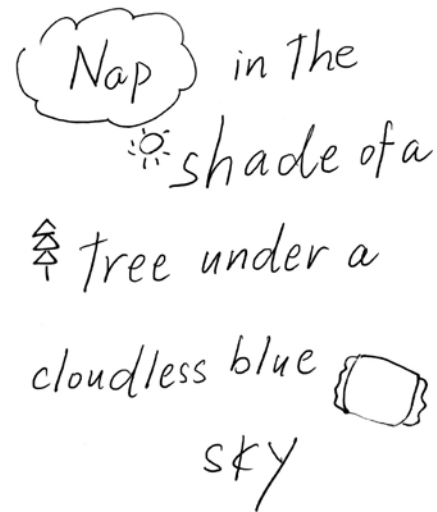 Nap in the
shade of a
tree under a
cloudless blue
sky